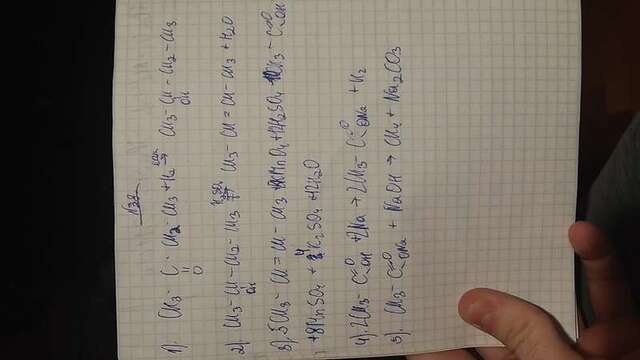 N38
1). CH3 - C - CH2 - CH3 + H2 кат → CH3 - CH - CH2 - CH3
O OH
2) CH3 - CH - CH2 - CH3 H2SO4 → CH3 - CH = CH - CH3 + H2O
OH t
3). 5CH3 - CH = CH - CH3 + 8KMnO4 + 12H2SO4 10CH3 - C =O OH
+ 8MnSO4 + 4K2SO4 + 12H2O
4). 2CH3 - C =O OH + 2Na → 2CH3 - C =O ONa + H2
5). CH3 - C =O ONa + NaOH → CH4 + Na2CO3